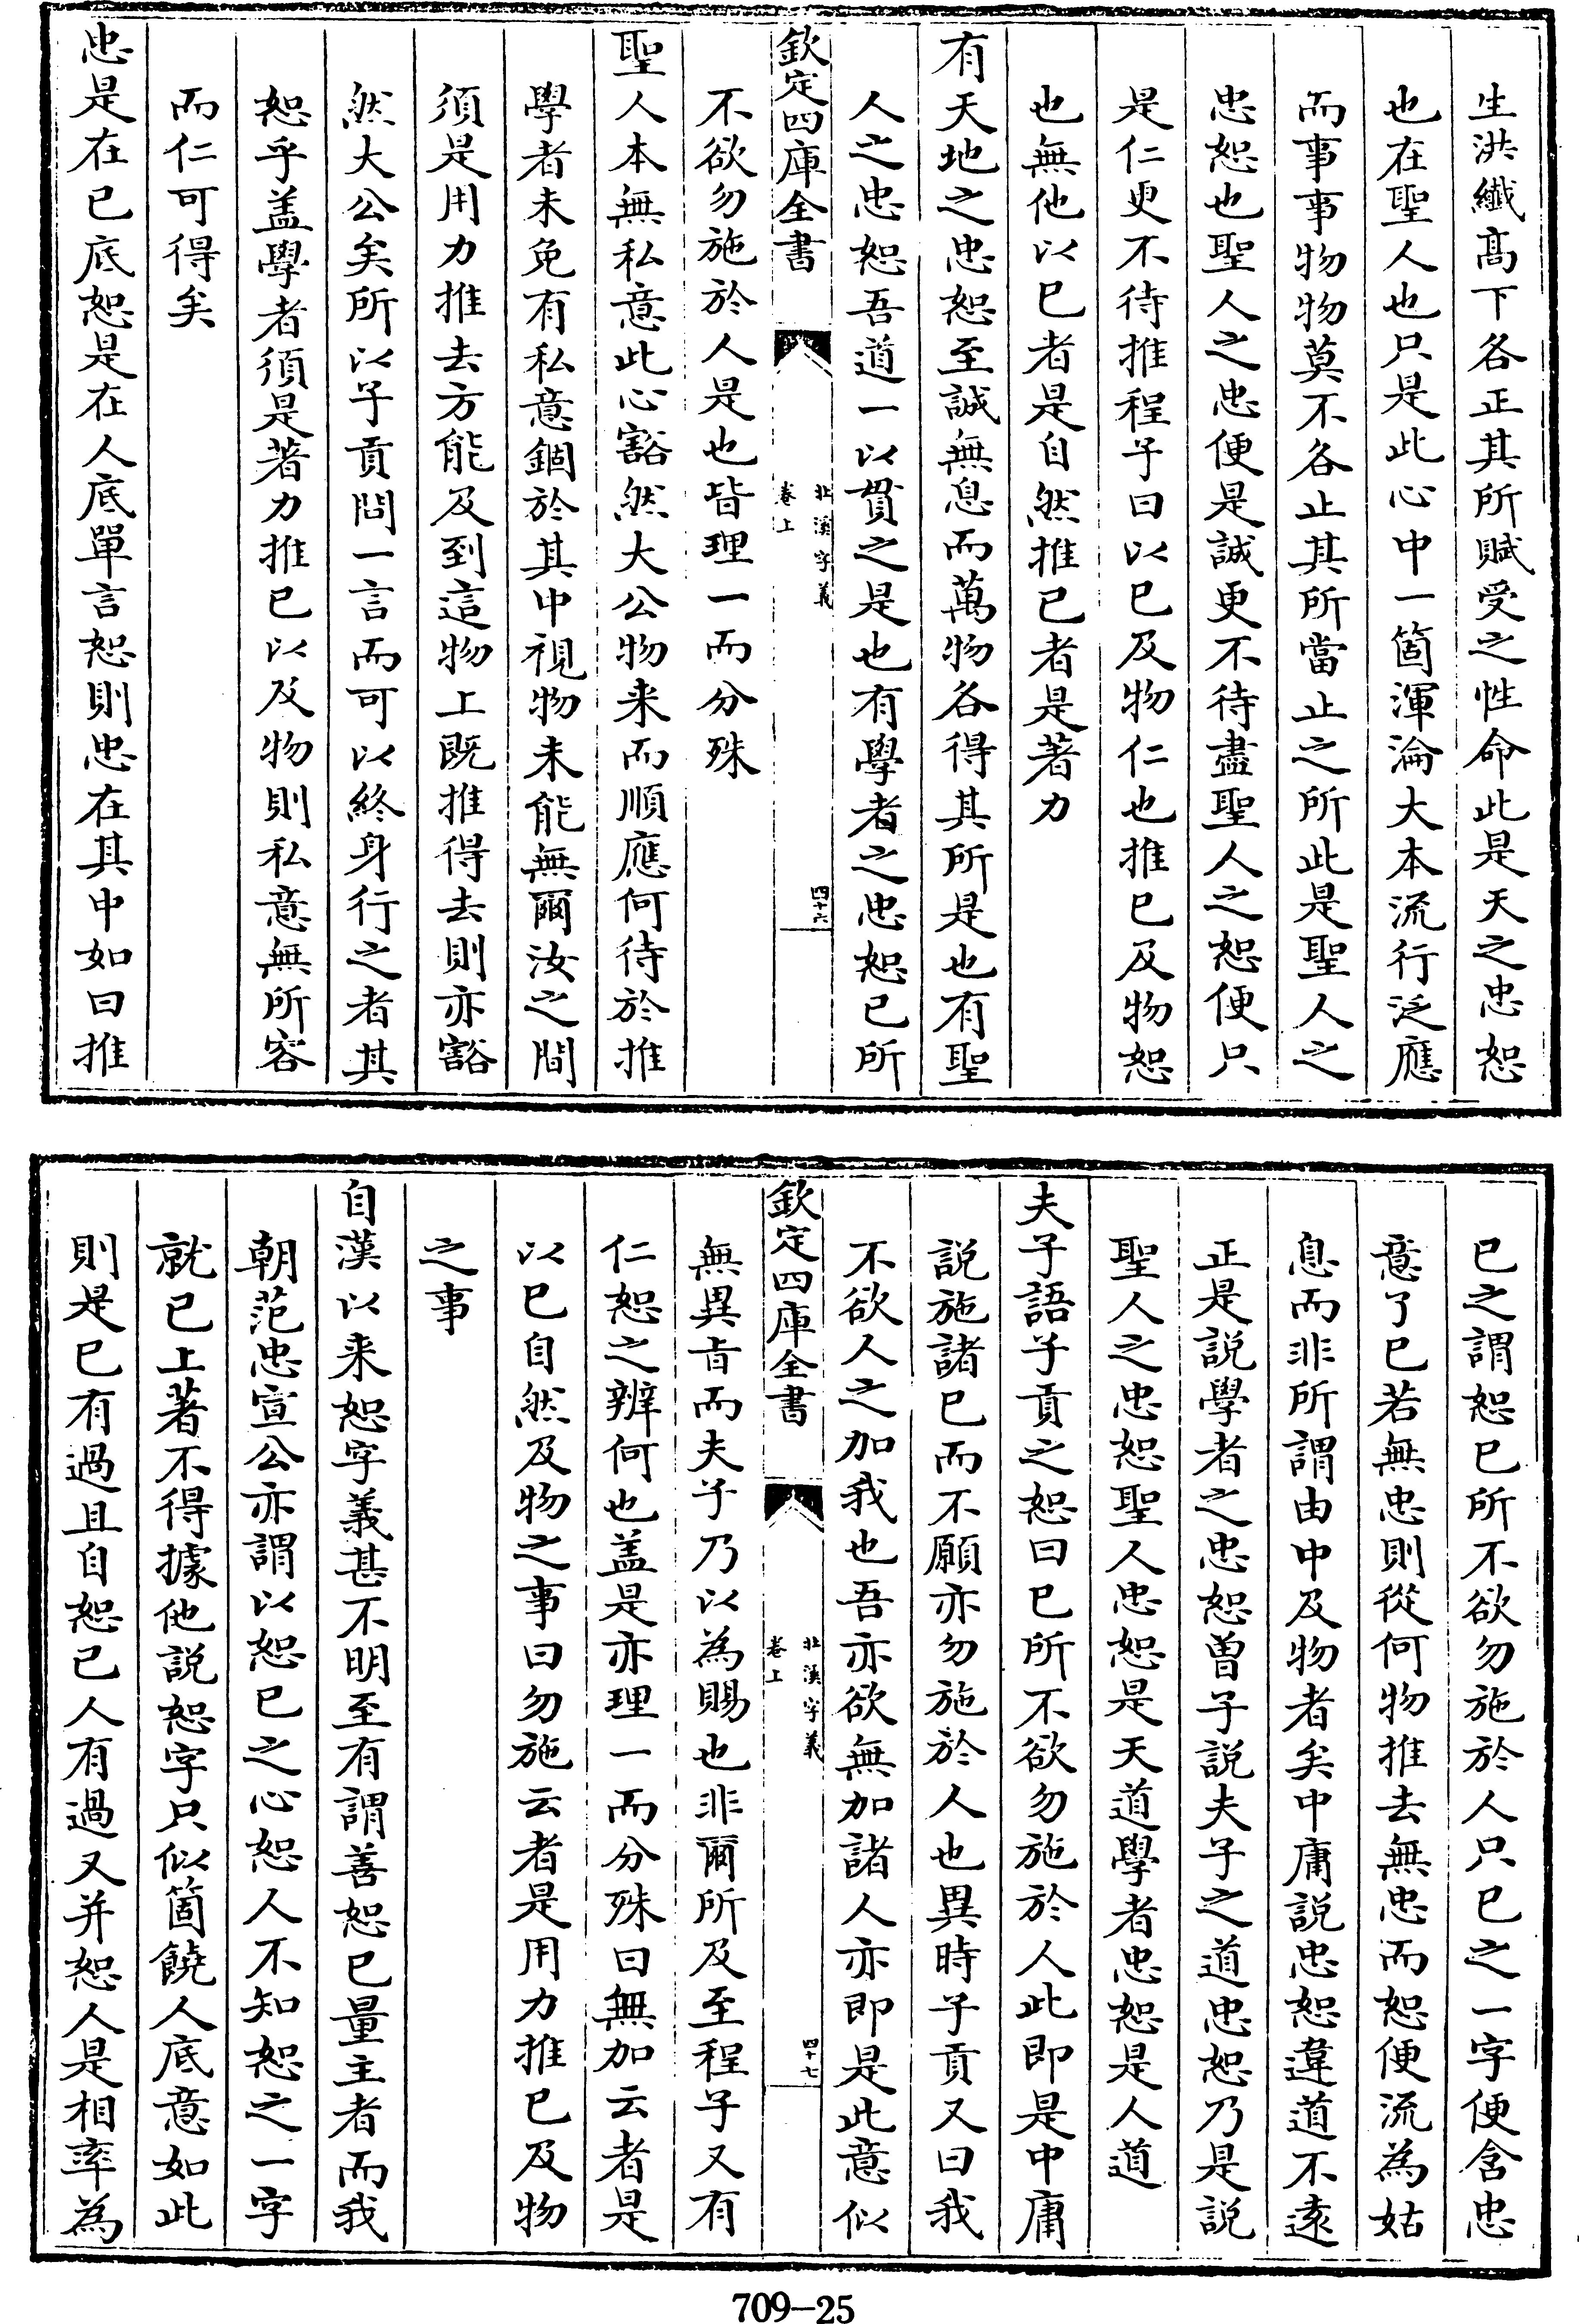 生洪纖髙下各正其所賦受之性命此是天之忠恕
也在聖人也只是此心中一箇渾淪大本流行泛應
而事事物物莫不各止其所當止之所此是聖人之
忠恕也聖人之忠便是誠更不待盡聖人之恕便只
是仁更不待推程子曰以已及物仁也推已及物恕
也無他以已者是自然推已者是著力
有天地之忠恕至誠無息而萬物各得其所是也有聖
人之忠恕吾道一以貫之是也有學者之忠恕已所
欽定四庫全書
北溪字義
卷上
四十六
不欲勿施於人是也皆理一而分殊
聖人本無私意此心豁然大公物来而順應何待於推
學者未免有私意錮於其中視物未能無爾汝之間
須是用力推去方能及到這物上既推得去則亦豁
然大公矣所以子貢問一言而可以終身行之者其
恕乎盖學者須是著力推已以及物則私意無所容
而仁可得矣
忠是在已底恕是在人底單言恕則忠在其中如曰推
已之謂恕已所不欲勿施於人只已之一字便含忠
意了已若無忠則從何物推去無忠而恕便流為姑
息而非所謂由中及物者矣中庸説忠恕違道不逺
正是説學者之忠恕曽子説夫子之道忠恕乃是説
聖人之忠恕聖人忠恕是天道學者忠恕是人道
夫子語子貢之恕曰已所不欲勿施於人此即是中庸
説施諸已而不願亦勿施於人也異時子貢又曰我
不欲人之加我也吾亦欲無加諸人亦即是此意似
欽定四庫全書
北溪字義
卷上
四十七
無異㫖而夫子乃以為賜也非爾所及至程子又有
仁恕之辨何也盖是亦理一而分殊曰無加云者是
以已自然及物之事曰勿施云者是用力推已及物
之事
自漢以来恕字義甚不明至有謂善恕已量主者而我
朝范忠宣公亦謂以恕已之心恕人不知恕之一字
就已上著不得據他説恕字只似箇饒人底意如此
則是已有過且自恕已人有過又并恕人是相率為
709-25